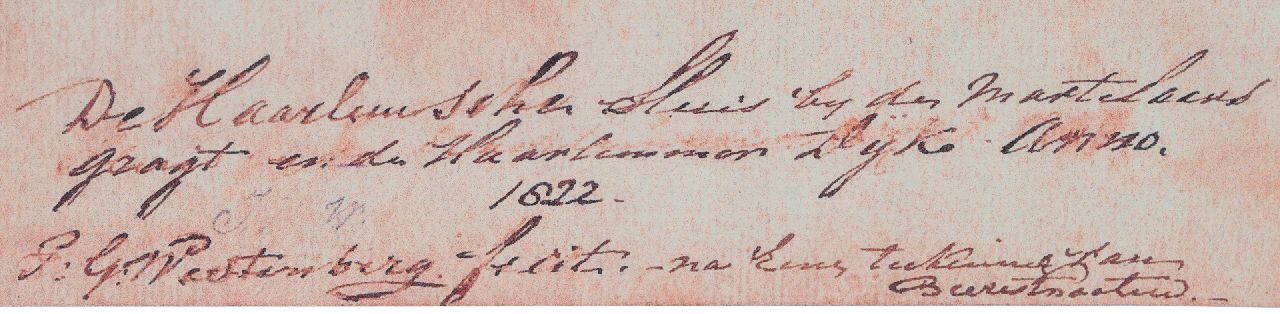 De Haarlemsche Sluis by de Martelaars
gragt en de Haarlemmer Dyk Anno.
1822.
P. G. Westenberg. fecit. - na Eene tekening van
Beerestraaten. -